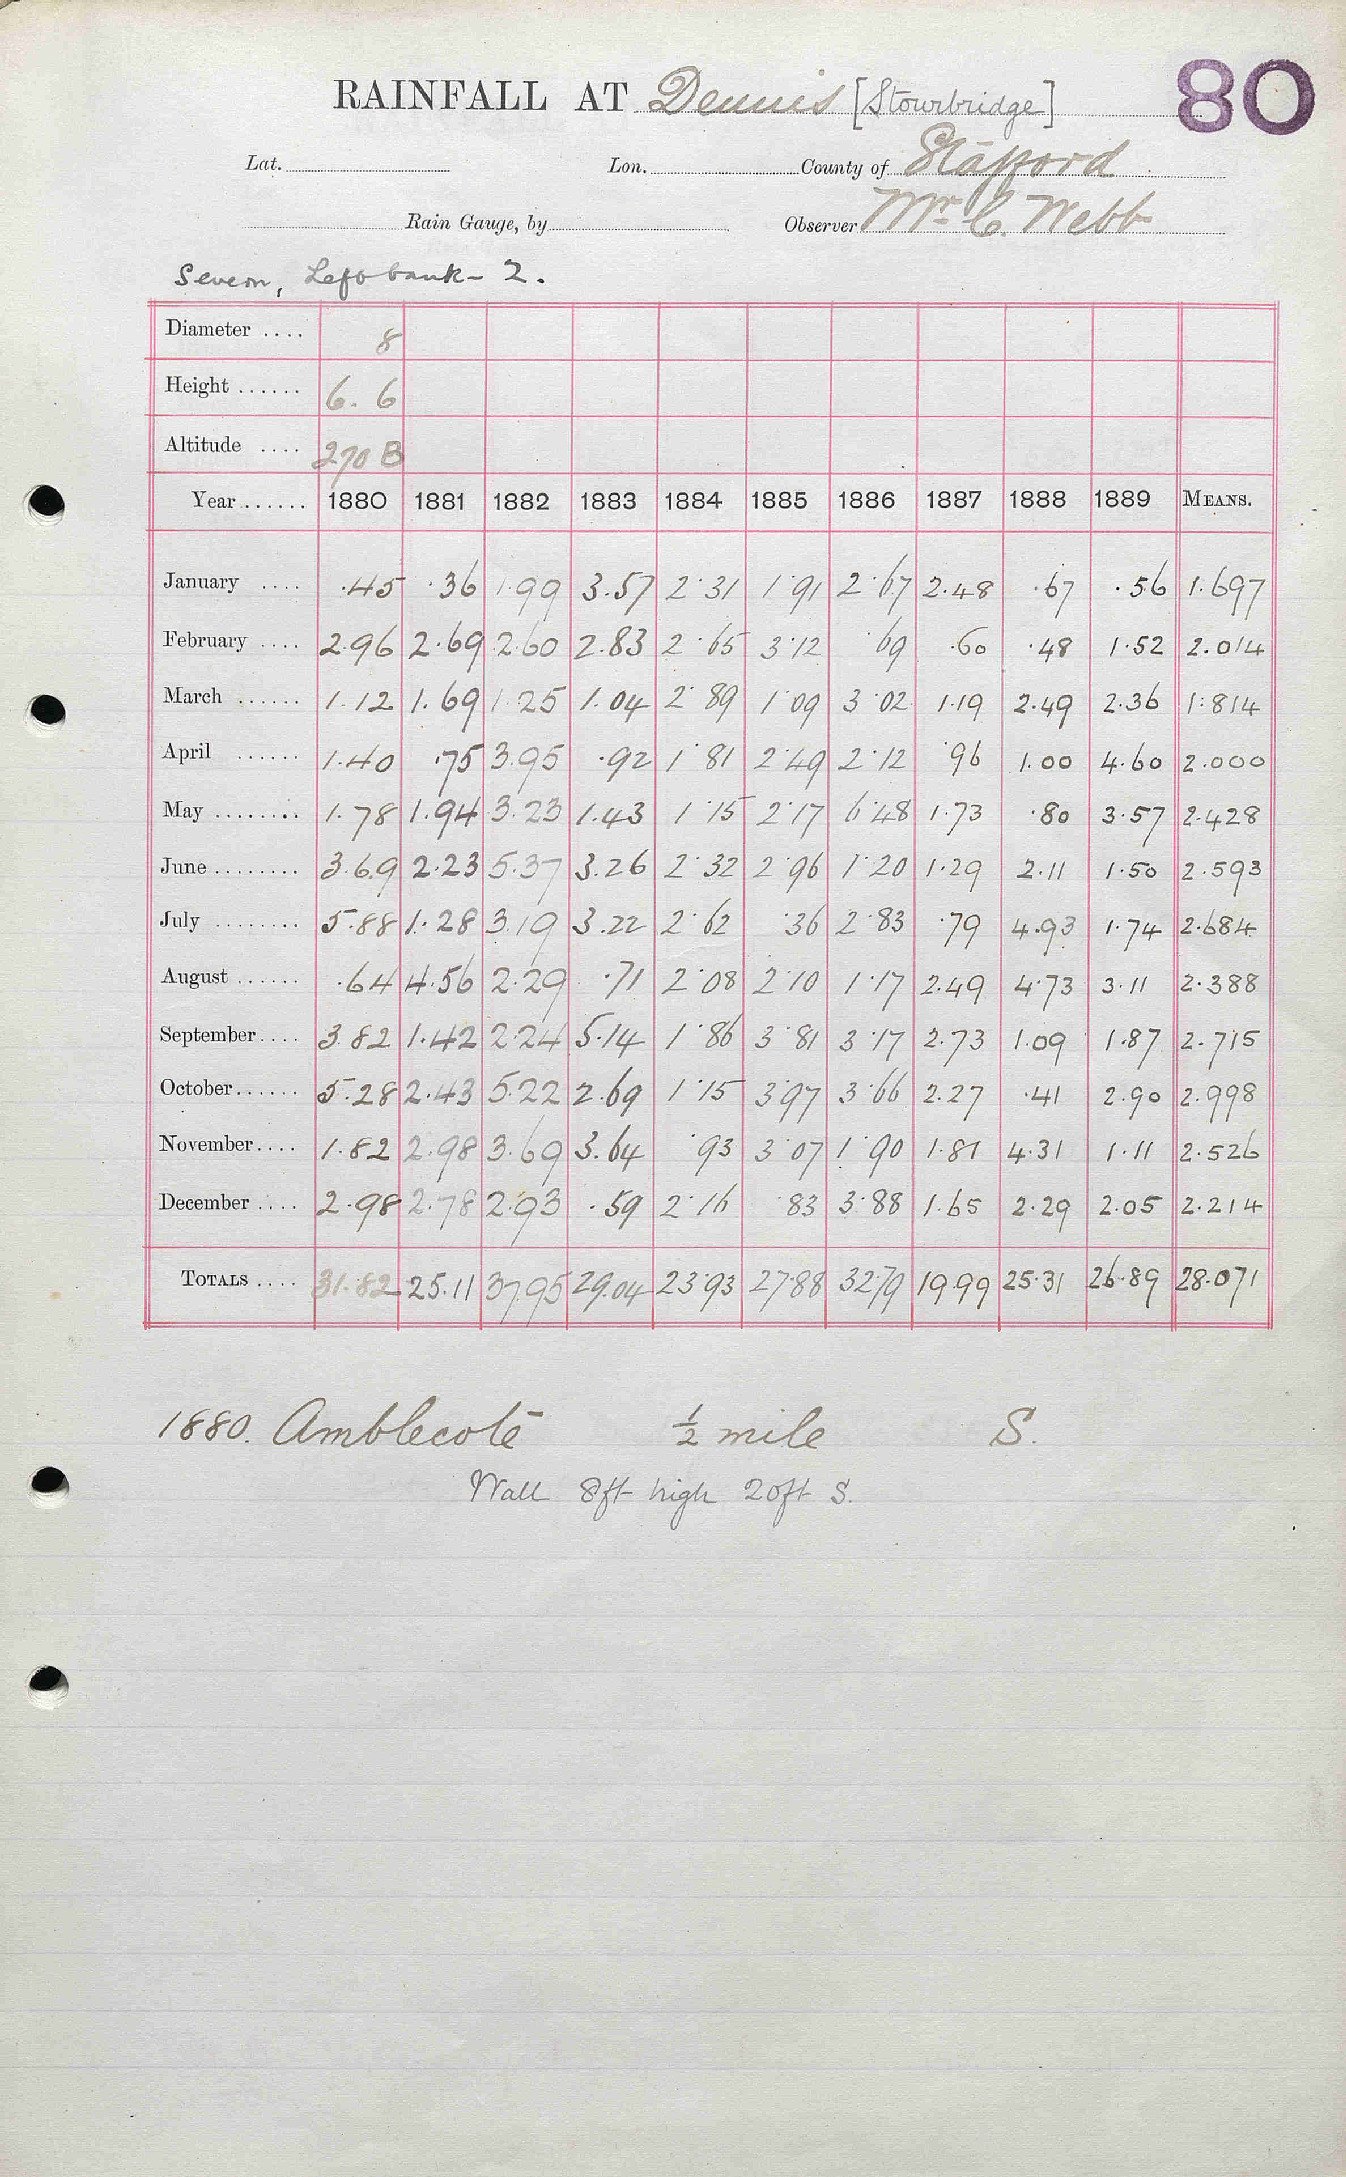 80
RAINFALL AT Dennis [Stourbridge]
Lat. Lon. County of Stafford
Rain Gauge, by Observer Mr C. Webb
Severn, Left bank - 2.
Diameter .... 8
Height ...... 6. 6
Altitude .... 270 B
Year ...... 1880 1881 1882 1883 1884 1885 1886 1887 1888 1889 MEANS.
January .... .45 .36 1.99 3.57 2.31 1.91 2.67 2.48 .67 .56 1.697
February .... 2.96 2.69 2.60 2.83 2.65 3.12 .69 .60 .48 1.52 2.014
March ...... 1.12 1.69 1.25 1.04 2.89 1.09 3.02 1.19 2.49 2.36 1.814
April ...... 1.40 .75 3.95 .92 1.81 2.49 2.12 .96 1.00 4.60 2.000
May ........ 1.78 1.94 3.23 1.43 1.15 2.17 6.48 1.73 .80 3.57 2.428
June ........ 3.69 2.23 5.37 3.26 2.32 2.96 1.20 1.29 2.11 1.50 2.593
July ........ 5.88 1.28 3.19 3.22 2.62 .36 2.83 .79 4.93 1.74 2.684
August ...... .64 4.56 2.29 .71 2.08 2.10 1.17 2.49 4.73 3.11 2.388
September .... 3.82 1.42 2.24 5.14 1.86 3.81 3.17 2.73 1.09 1.87 2.715
October ...... 5.28 2.43 5.22 2.69 1.15 3.97 3.66 2.27 .41 2.90 2.998
November .... 1.82 2.98 3.69 3.64 .93 3.07 1.90 1.81 4.31 1.11 2.526
December .... 2.98 2.78 2.93 .59 2.16 .83 3.88 1.65 2.29 2.05 2.214
TOTALS .... 31.82 25.11 37.95 29.04 23.93 27.88 32.79 19.99 25.31 26.89 28.071
1880. Amblecote ½ mile S.
Wall 8ft high 20ft S.